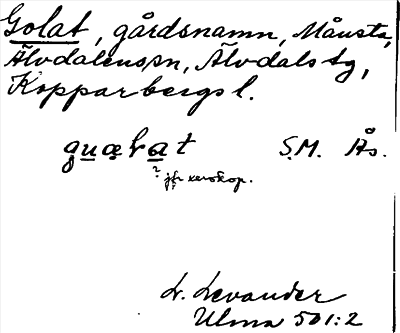 Golat, gårdsnamn, Månsta,
Älvdalens sn, Älvdals tg,
Kopparbergs l.
S.M. Ås.
? jfr xeroxkop.
L. Levander
Ulma 501:2